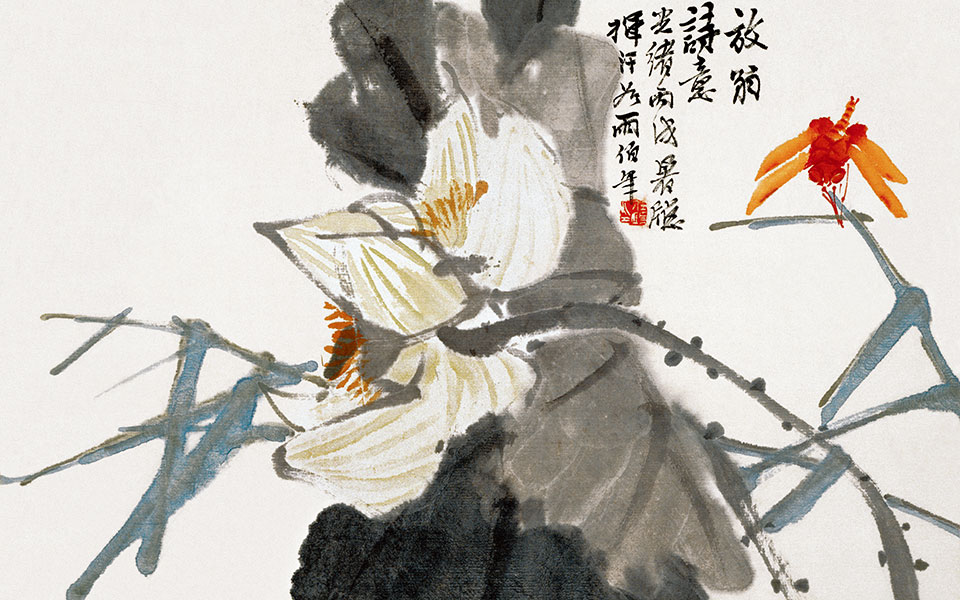 放翁
詩意
光緒丙戌暑牕
揮汗如雨伯年